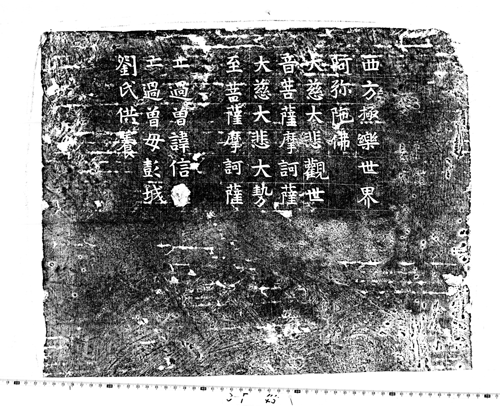 西方極樂世界
阿弥陁佛
大慈大悲觀世
音菩薩摩訶薩
大慈大悲大勢
至菩薩摩訶薩
亡過曾諱信
亡過曾母彭城
劉氏供養